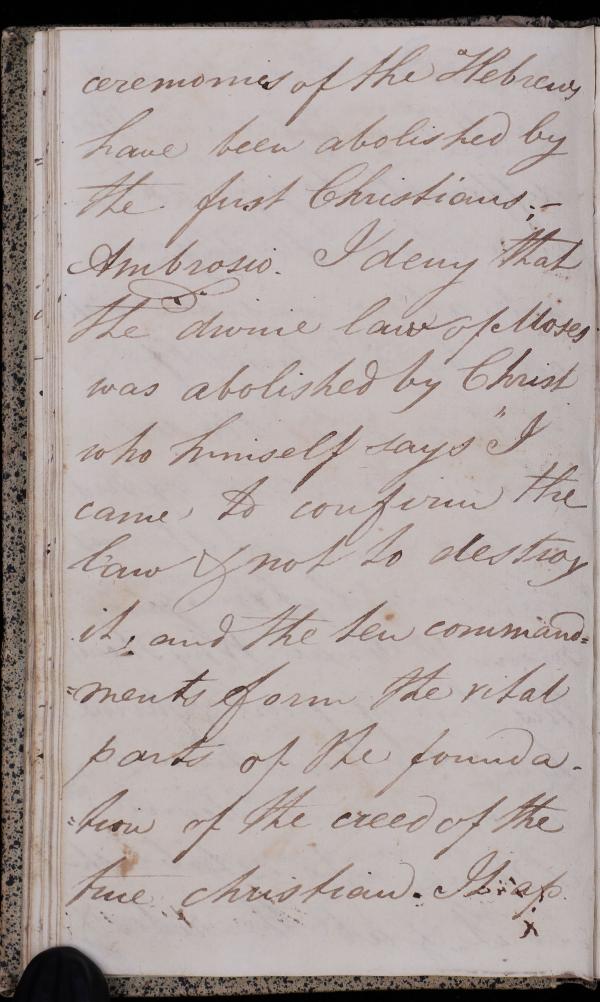 ceremonies of the Hebrews
have been abolished by
the first Christians;–
Ambrosio. I deny that
the divine law of Moses
was abolished by Christ
who himself says "I
came to confirm the
law & not to destroy
it, and the ten command=
=ments form the vital
parts of the founda-
=tion of the creed of the
true christian. It ap
x